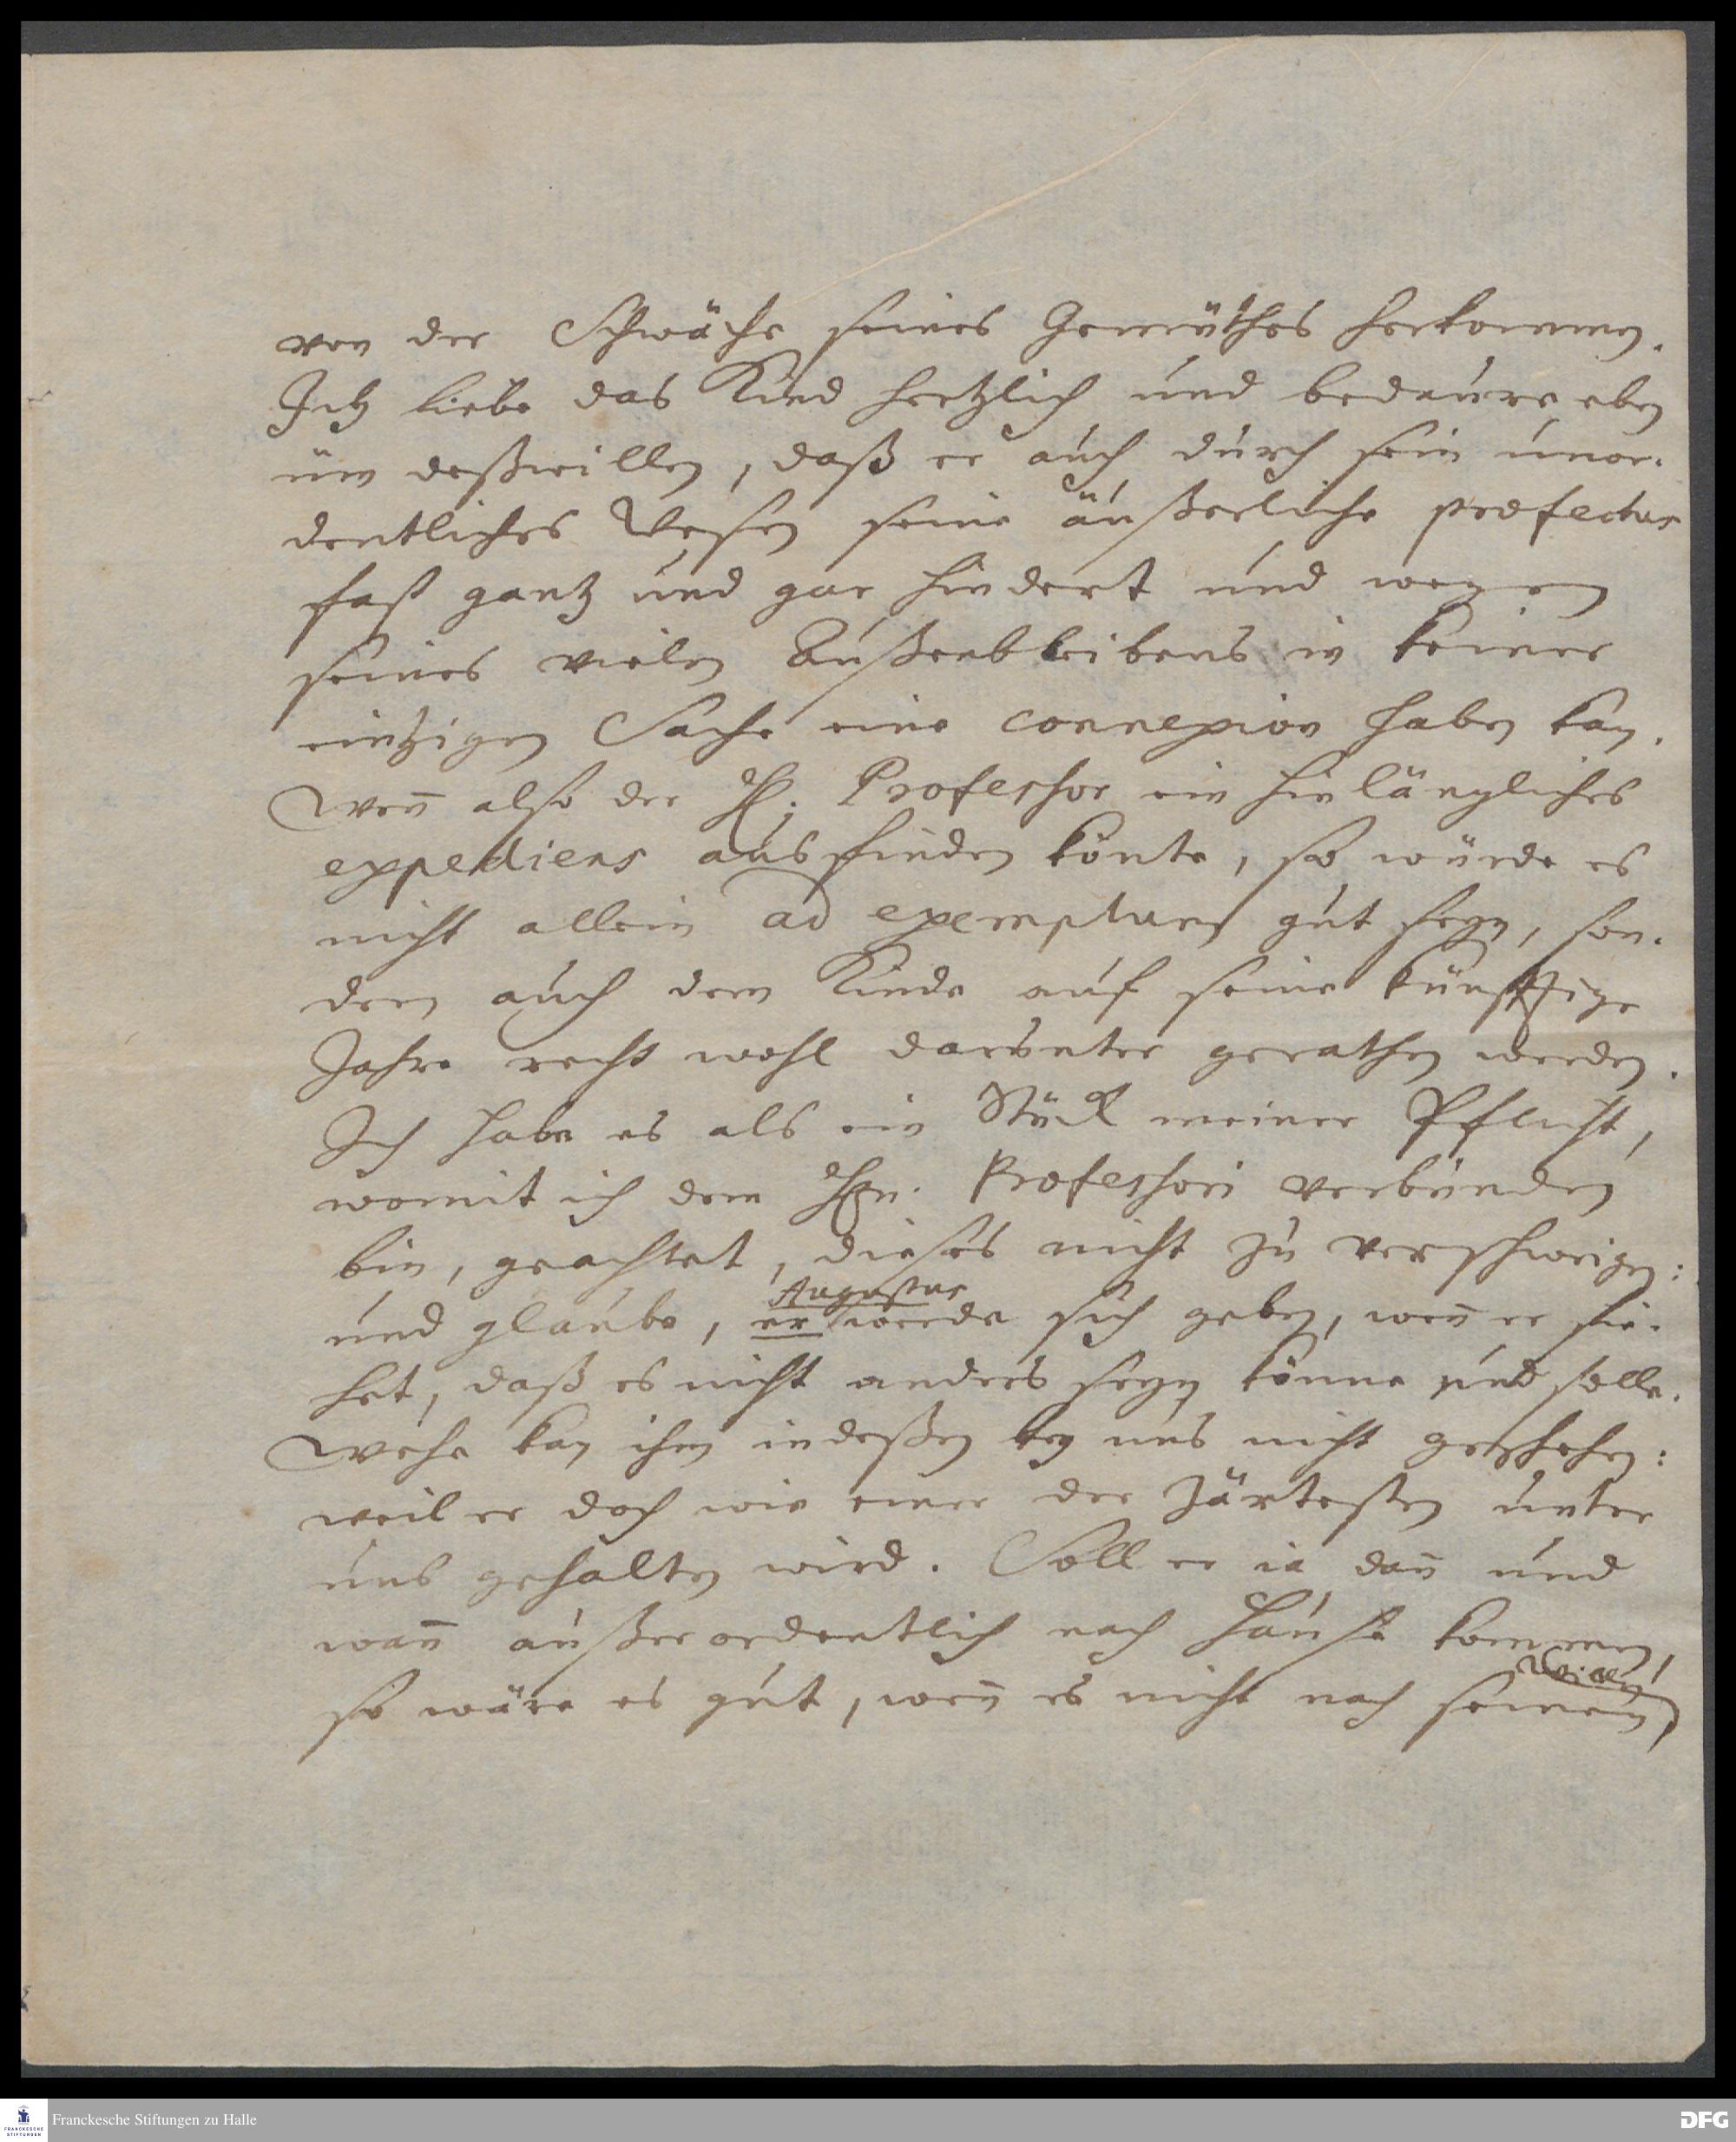 von der Schwäche seines Gemüthes herkommen.
Ich liebe das Kind hertzlich und bedaure eben
üm deßwillen, daß er auch durch sein unor-
dentliches Wesen seine äußerliche profectus
fast gantz und gar hindert und wegen
seines vielen Außenbleibens in keiner
eintzigen Sache eine connexion haben kan.
Wen̄ also der H. Professor ein hinlängliches
expediens ausfinden könte, so würde es
nicht allein ad exemplum gut seyn, son-
dern auch dem Kinde auf seine künfftige
Jahre recht wohl darunter gerathen werden.
Ich habe es als ein Stück meiner Pflicht,
womit ich dem Hrn. Professori verbunden
bin, geachtet, dieses nicht zu verschweigen:
Augustus
und glaube, er werde sich geben, wen̄ er sie-
het, daß es nicht anders seyn könne und solle.
Wehe kan ihm indeßen bey uns nicht geschehen:
weil er doch wie einer der Zärtesten unter
uns gehalten wird. Soll er ia dan̄ und
wan̄ außerordentlich nach Hause kommen,
so wäre es gut, wen̄ es nicht nach seinem
Willen
Franckesche Stiftungen zu Halle
FRANCKESCHE
STIFTUNGEN
DFG